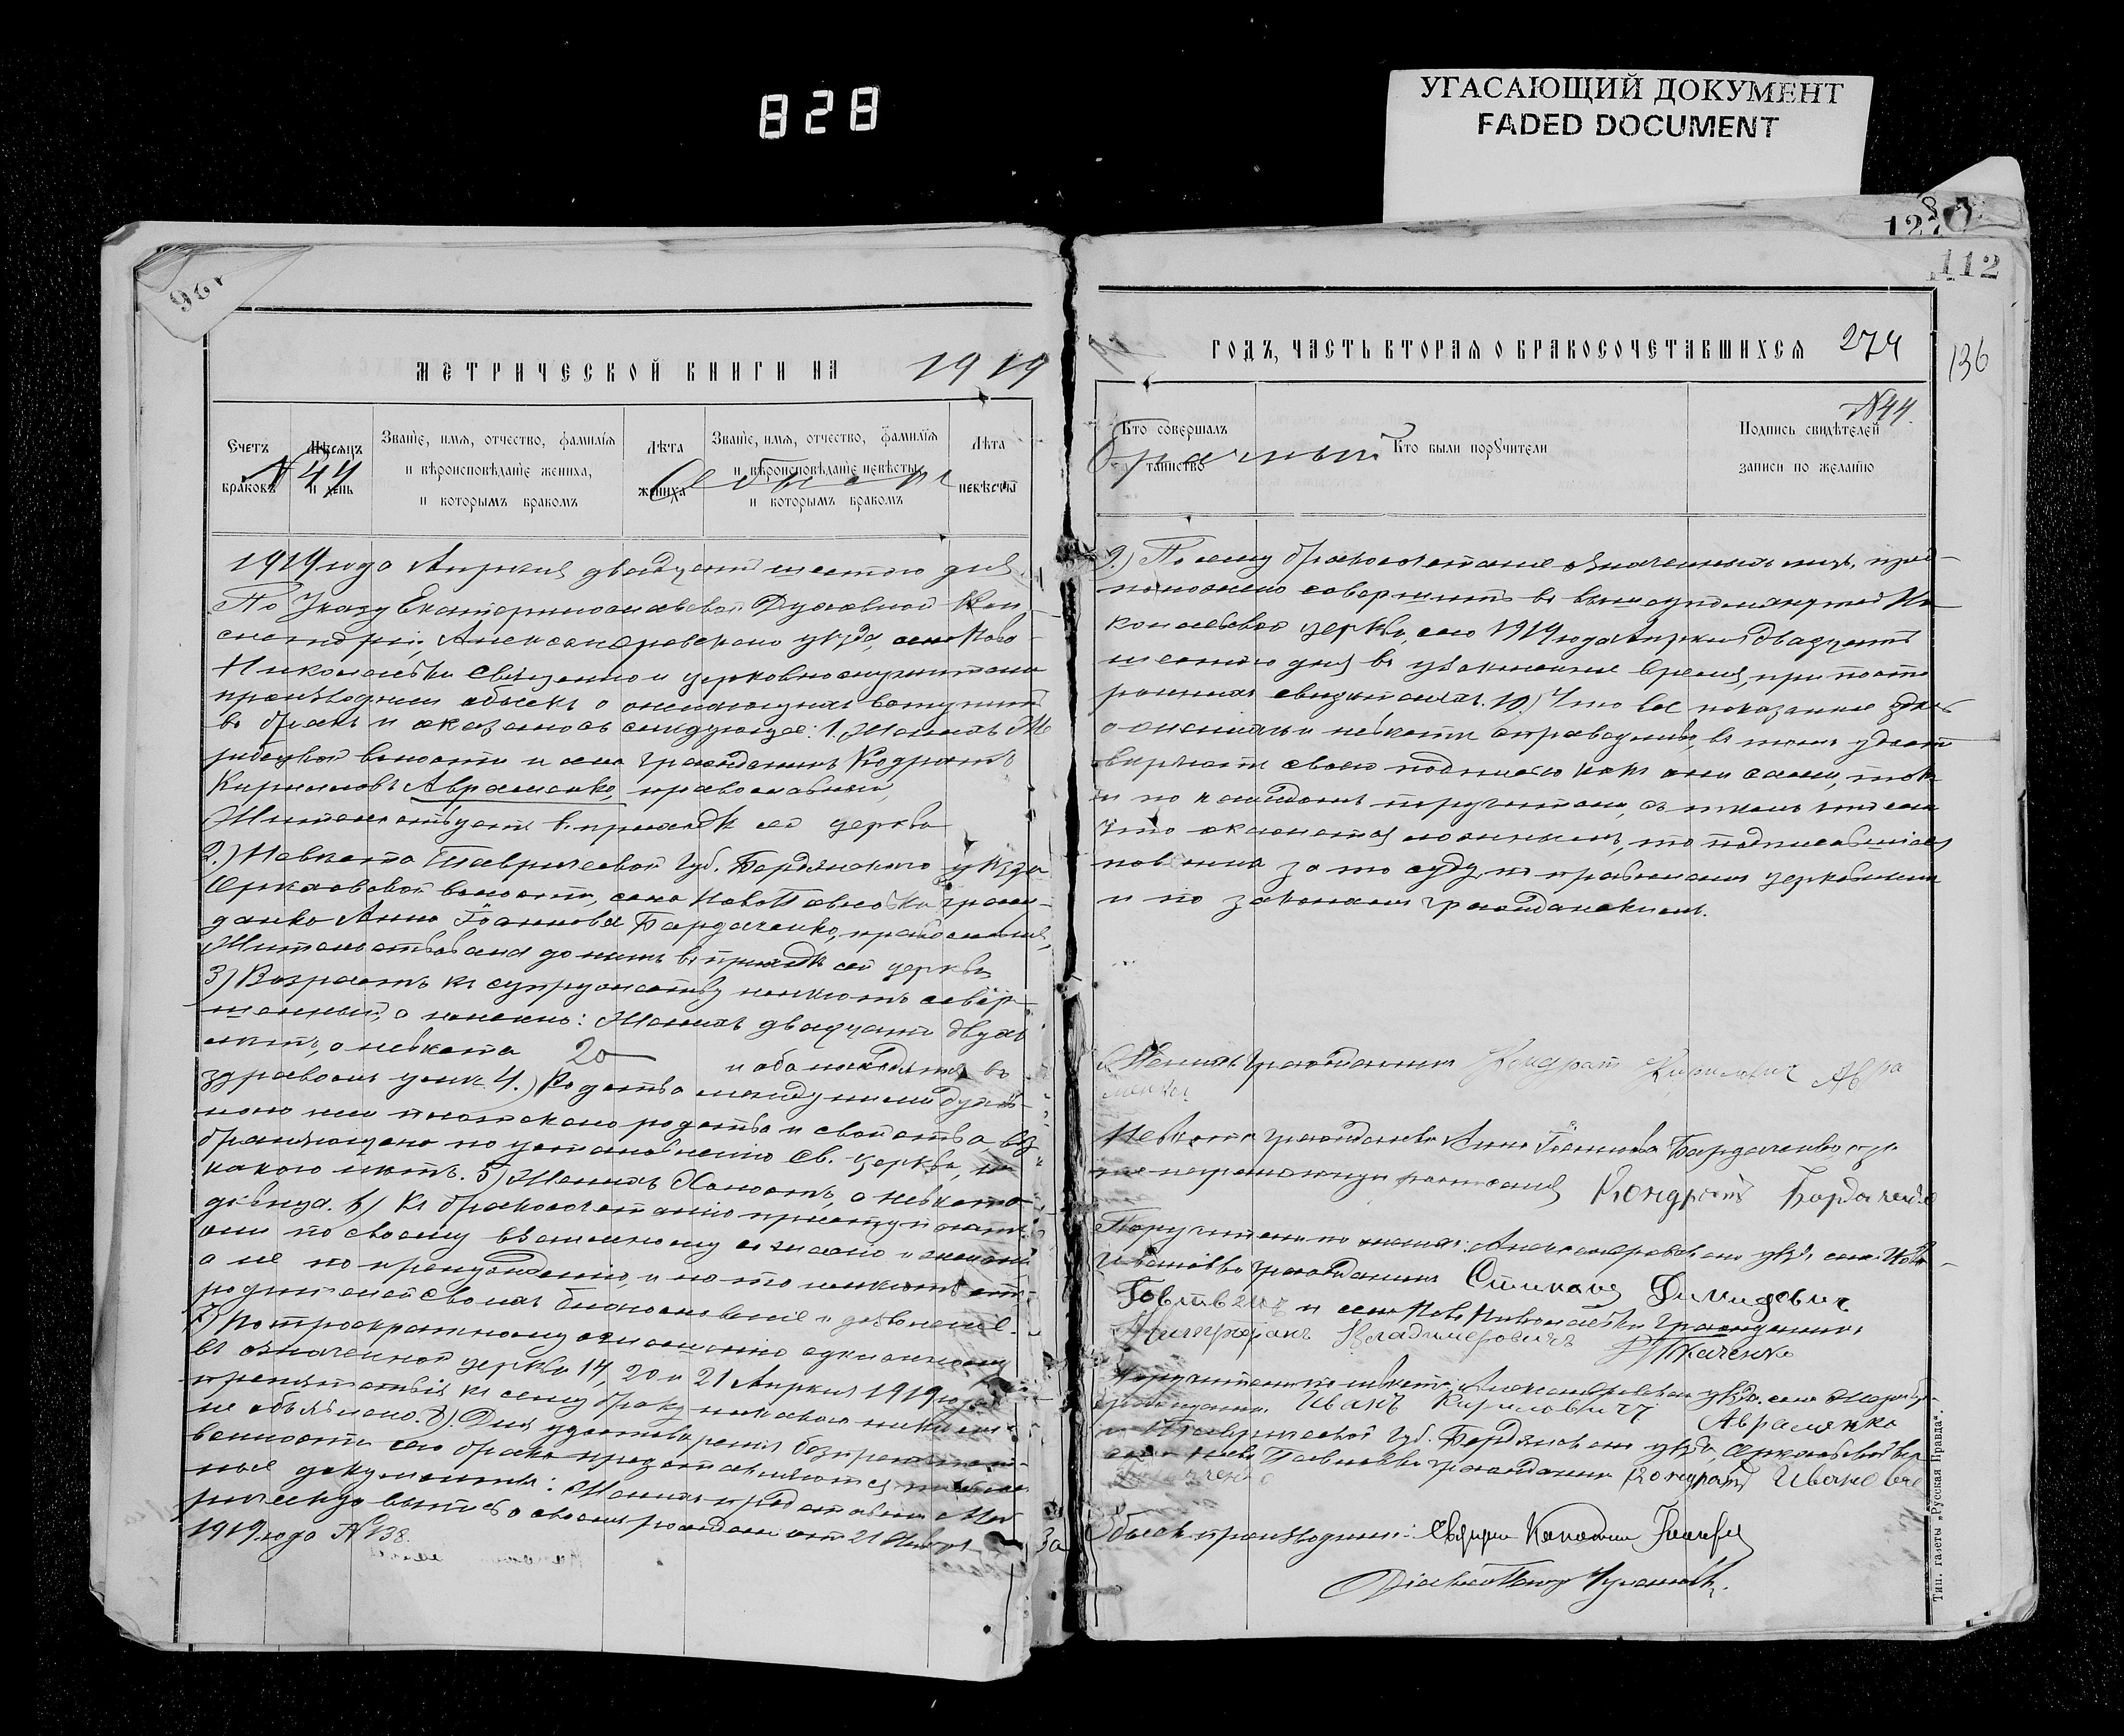 828
УГАСАЮЩИЙ ДОКУМЕНТ
FADED DOCUMENT
127
112
136
МЕТРИЧЕСКОЙ КНИГИ НА 1919
Счетъ браковъ
Мѣсяцъ и день
Званіе, имя, отчество, фамилія и вѣроисповѣданіе жениха, и которымъ бракомъ
Лѣта жениха
Званіе, имя, отчество, фамилія и вѣроисповѣданіе невѣсты, и которымъ бракомъ
Лѣта невѣсты
№ 44 Обыскъ
1919 года Апрѣля двадцать шестого дня
По Указу Екатеринославской Духовной Кон-
систоріи, Александровскаго уѣзда, села Ново-
Николаевки священно и церковнослужители
производили обыскъ о желающихъ вступить
въ бракъ и оказалось слѣдующее: 1. Женихъ Же
ребецкой волости и села гражданинъ Кодратъ
Кирилловъ Авраменко, православный,
Жительствуетъ въ приходѣ сей церкви
2.) Невѣста Таврической Губ. Бердянскаго уѣзда
волости, села НовоПавловки граж-
данка Анна Іоаннова Бардаченко, православная,
Жительствовала до нынѣ въ приходѣ сей церкви
3) Возрастъ къ супружеству имѣютъ совер-
шенный, а именно: Женихъ двадцати двухъ
лѣтъ, а невѣста 20 и оба находятся въ
здравомъ умѣ 4.) Родства между ними духов-
наго или плотскаго родства и свойства, воз
браняющаго по установленію Св. Церкви, ни
какого нѣтъ. 5) Женихъ Холостъ, а невѣста
дѣвица. 6) Къ бракосочетанію приступаютъ
они по своему взаимному согласію и желанію
а не по принужденію, и на то имѣютъ отъ
родителей своихъ благословеніе и дозволеніе.
7) По троекратному оглашенію сдѣланному
въ означенной церкви 14, 20 и 21 Апрѣля 1919 года
препятствія къ сему браку никакого никѣмъ
не объявлено. 8). Для удостовѣренія безпрепятст-
венности сего брака представляются письмен
ные документы: Женихъ представилъ Мет
рическую выпись о своемъ рожденіи отъ 21
1919 года № 138.
ГОДЪ, ЧАСТЬ ВТОРАЯ О БРАКОСОЧЕТАВШИХСЯ 274
Кто совершалъ таинство
Кто были поручители
Подпись свидѣтелей записи по желанію
№44.
Брачный
9.) По сему бракосочетаніе означенныхъ лицъ, пред-
положено совершить въ вышеупомянутой Ни
колаевской церкви, сего 1919 года Апрѣля двадцать
шестого дня въ узаконенное время, при посто
роннихъ свидѣтеляхъ. 10.) Что все показанное здѣсь
о женихѣ и невѣстѣ справедливо, въ томъ удосто
вѣряютъ своею подписью какъ они сами, такъ
и по каждомъ поручители, съ тѣмъ что если
что окажется ложнымъ, то подписавшіеся
повинны за то суду по правиламъ церковнымъ
и по законамъ гражданскимъ.
Женихъ гражданинъ Кондрат Кирилович Авра
менко
Невѣста гражданка Анна Іоаннова Бардаченко а за
нее неграмотную расписался Кондратъ Бардаченко
Поручители по женихѣ: Александровскаго уѣзда села Ново
гражданинъ Степанъ Демидович
и села Ново Николаевки гражданинъ
Владимеровичъ Ткаченко
Поручители по невѣстѣ: Александровскаго уѣзда, села Жеребца
гражданинъ Иванъ Кириловичъ Авраменко
и Таврической Губ. Бердянскаго уѣзда,
села Ново Павловки гражданинъ Кондратъ Иванович
Бардаченко
Обыскъ производили: Священ
Тип. газеты „Русская Правда".